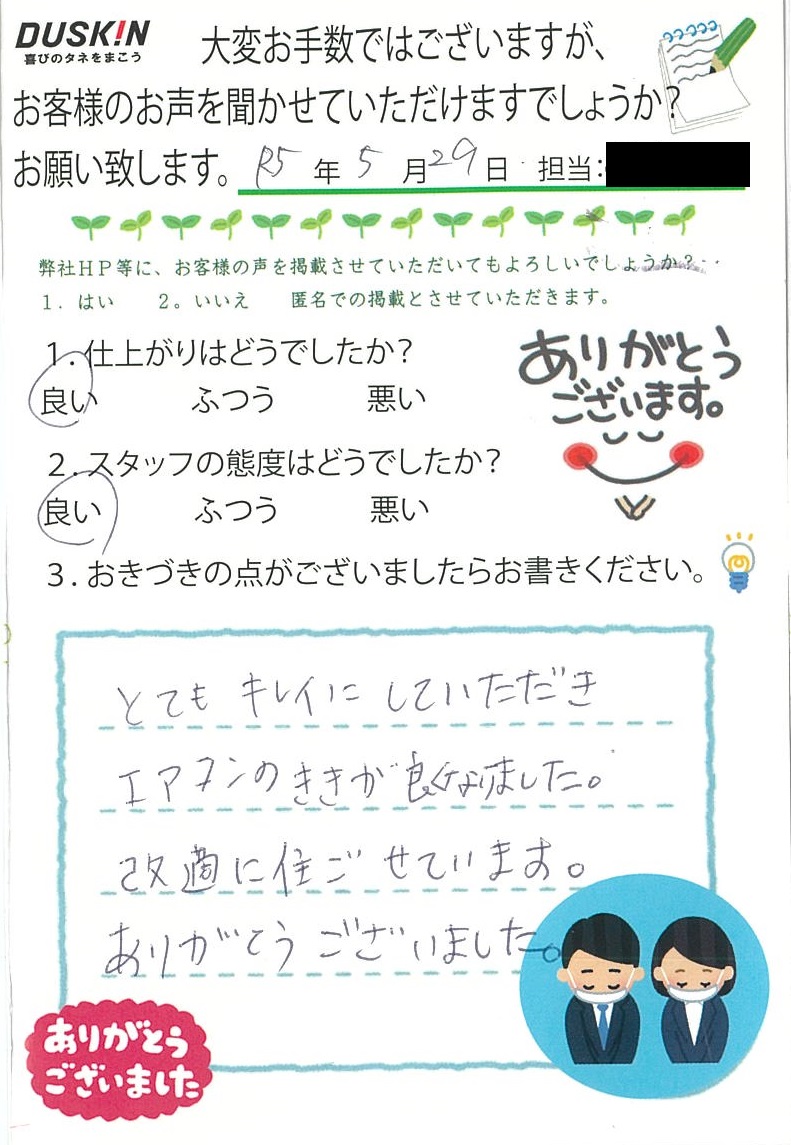 DUSK!N
喜びのタネをまこう
大変お手数ではございますが、
お客様のお声を聞かせていただけますでしょうか?
お願い致します。 R5 年 5 月 29 日 担当:
弊社HP等に、お客様の声を掲載させていただいてもよろしいでしょうか?
1. はい 2。いいえ 匿名での掲載とさせていただきます。
1.仕上がりはどうでしたか?
良い ふつう 悪い
ありがとう
ございます。
2.スタッフの態度はどうでしたか?
良い ふつう 悪い
3.おきづきの点がございましたらお書きください。
とても キレイに していただき
エアコンの ききが 良くなりました。
改適に住ごせています。
ありがとう ございました。
ありがとう
ございました